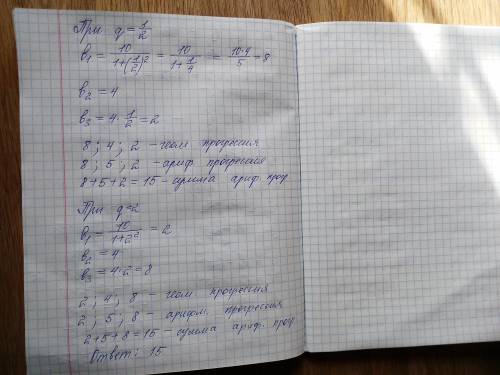 При q = 1/2
b₁ = 10/(1+(1/2)²) = 10/(1+1/4) = 10·4/5 = 8
b₂ = 4
b₃ = 4 · 1/2 = 2
8 ; 4 ; 2 - геом. прогрессия
8 ; 5 ; 2 - ариф. прогрессия
8+5+2 = 15 - сумма ариф. прог.
При q=2
b₁ = 10/(1+2²) = 2
b₂ = 4
b₃ = 4·2 = 8
2 ; 4 ; 8 - геом. прогрессия
2 ; 5 ; 8 - арифм. прогрессия
2+5+8 = 15 - сумма ариф. прог.
Ответ: 15